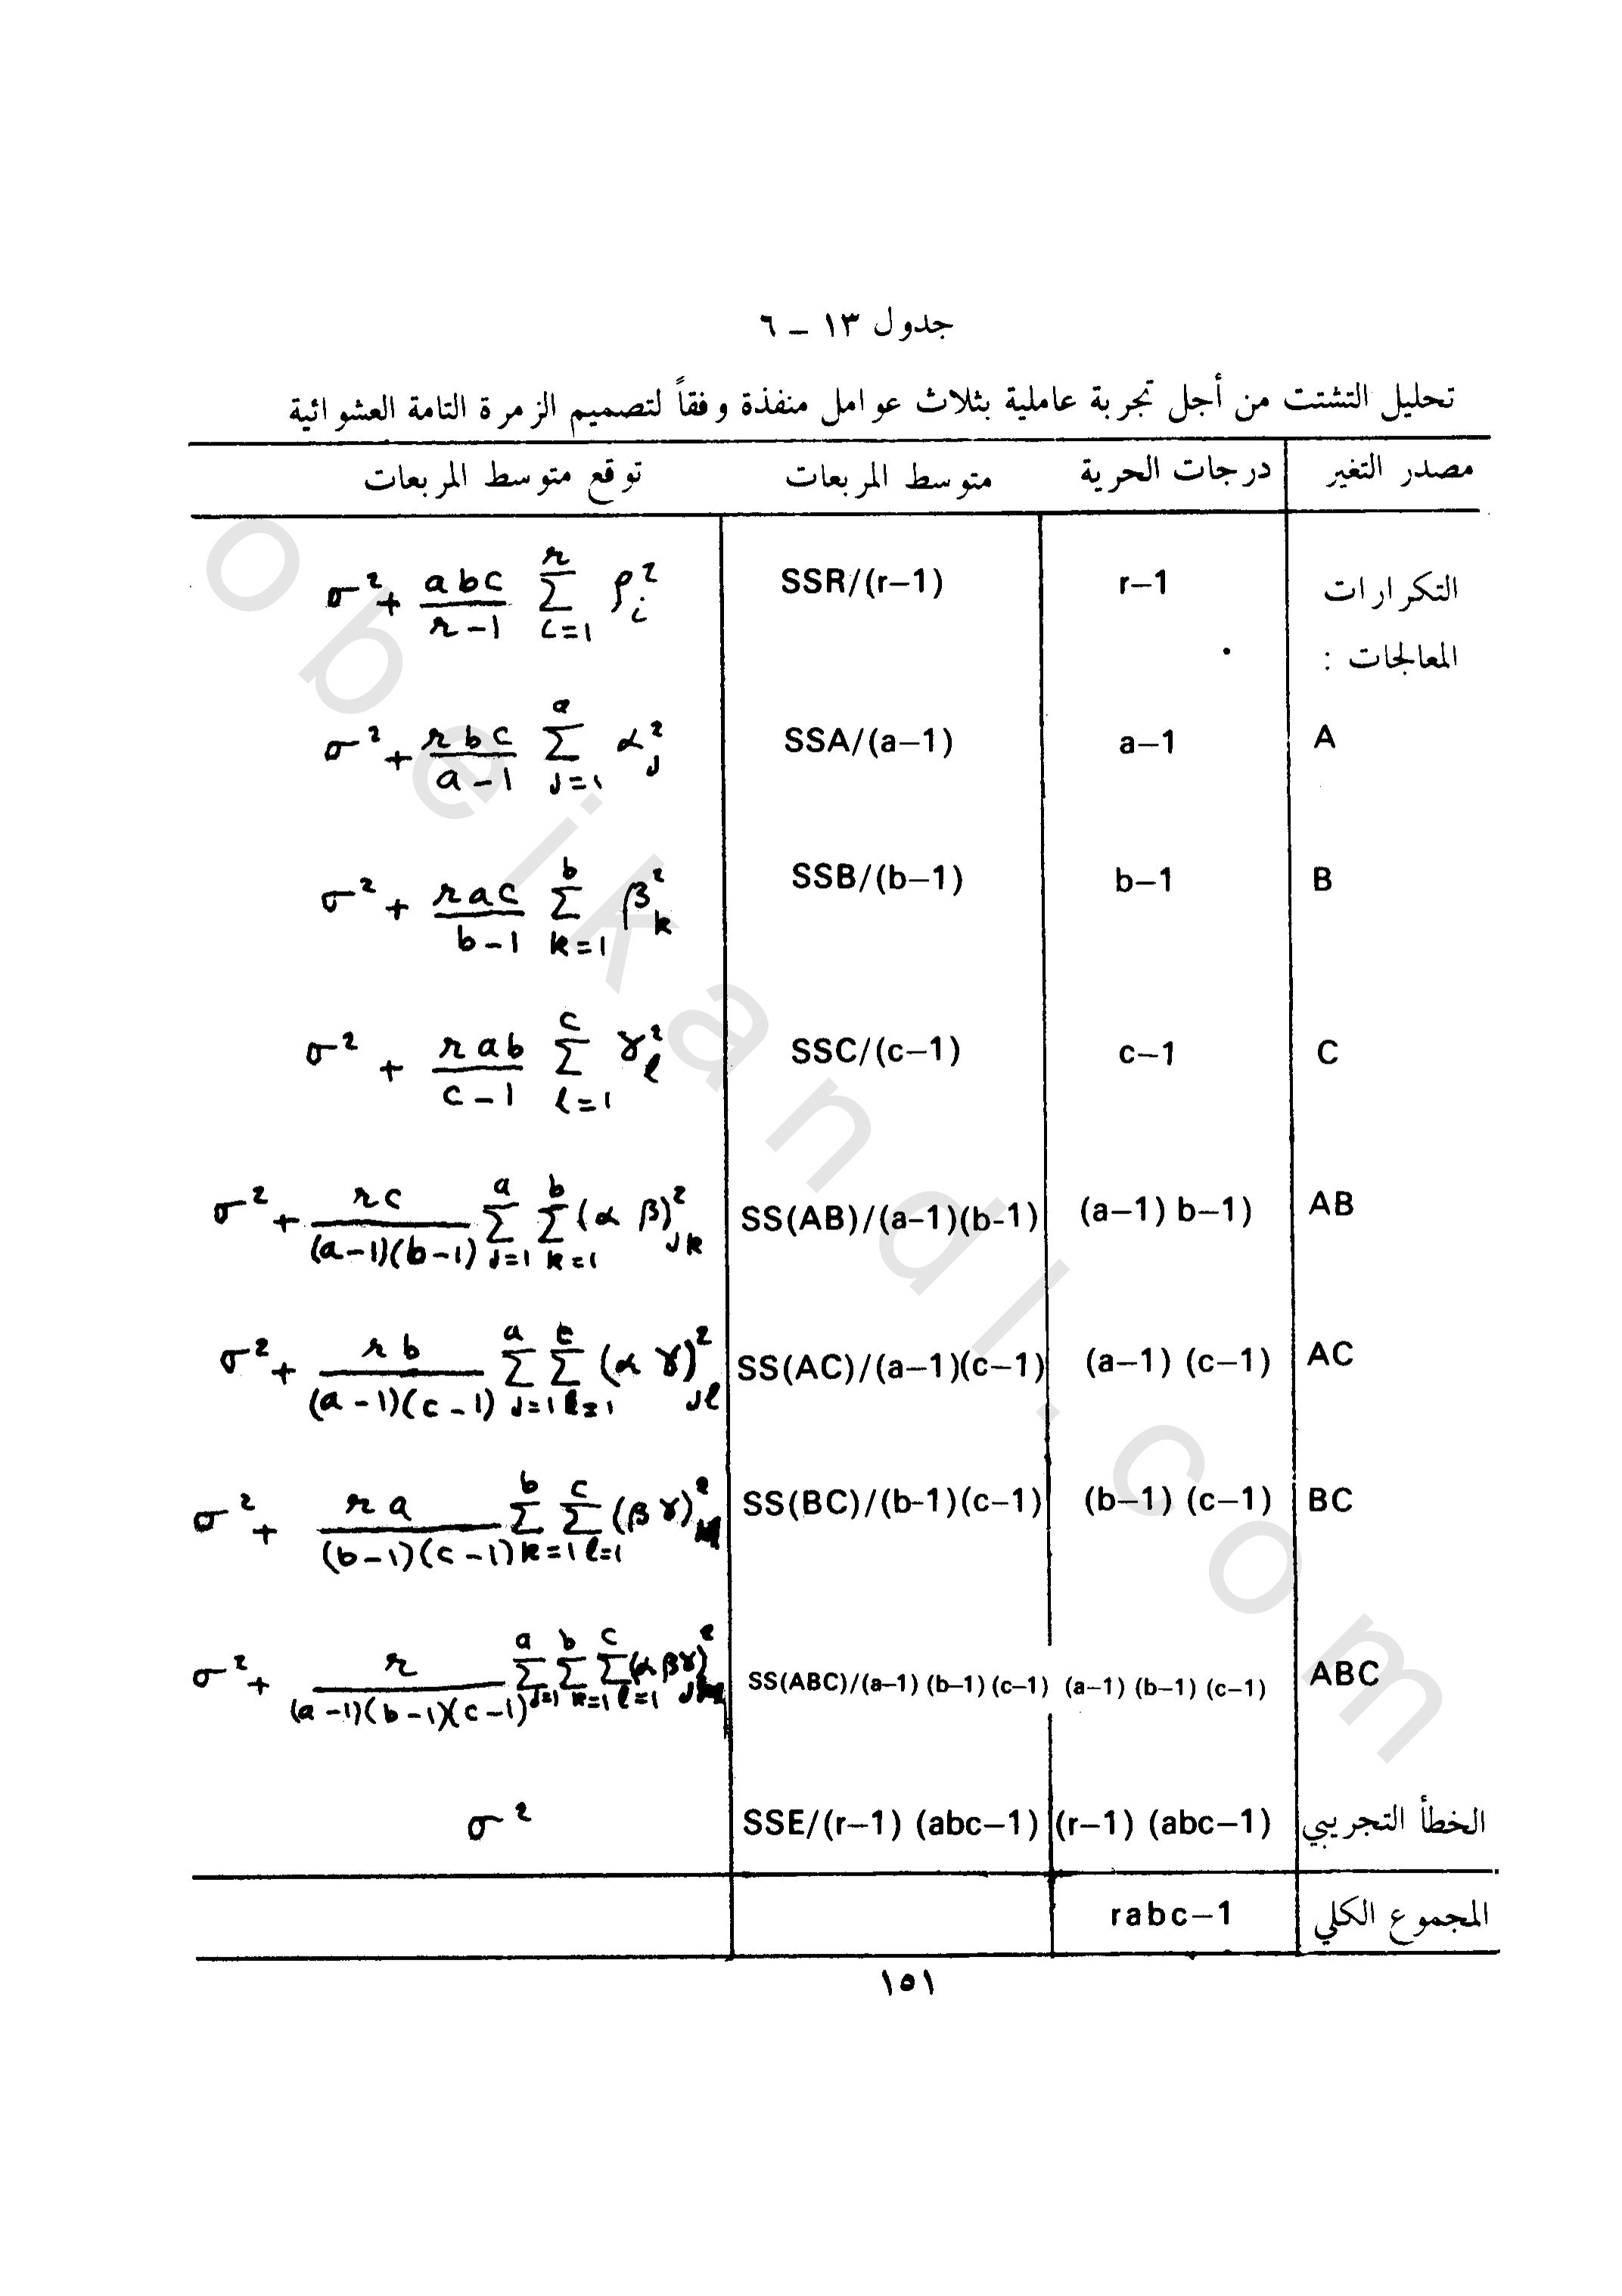 جدول ١٣ – ٦
تحليل التشتت من أجل تجربة عاملية بثلاث عوامل منفذة وفقاً لتصميم الزمرة التامة العشوائية
مصدر التغير درجات الحرية متوسط المربعات توقع متوسط المربعات
التكرارات r–1 SSR/(r–1) σ² + abc/(r–1) Σ_{i=1}^{r} ρ_i²
المعالجات :
A a–1 SSA/(a–1) σ² + rbc/(a–1) Σ_{j=1}^{a} α_j²
B b–1 SSB/(b–1) σ² + rac/(b–1) Σ_{k=1}^{b} β_k²
C c–1 SSC/(c–1) σ² + rab/(c–1) Σ_{l=1}^{c} γ_l²
AB (a–1) b–1) SS(AB)/(a–1)(b-1) σ² + rc/(a–1)(b–1) Σ_{j=1}^{a} Σ_{k=1}^{b} (α β)_{jk}²
AC (a–1) (c–1) SS(AC)/(a–1)(c–1) σ² + rb/(a–1)(c–1) Σ_{j=1}^{a} Σ_{l=1}^{c} (α γ)_{jl}²
BC (b–1) (c–1) SS(BC)/(b-1)(c–1) σ² + ra/(b–1)(c–1) Σ_{k=1}^{b} Σ_{l=1}^{c} (β γ)²
ABC (a–1) (b–1) (c–1) SS(ABC)/(a–1) (b–1) (c–1) σ² + r/(a–1)(b–1)(c–1) Σ_{j=1}^{a} Σ_{k=1}^{b} Σ_{l=1}^{c} (α β γ)²
الخطأ التجريبي (r–1) (abc–1) SSE/(r–1) (abc–1) σ²
المجموع الكلي rabc–1
١٥١
obeikandl.com